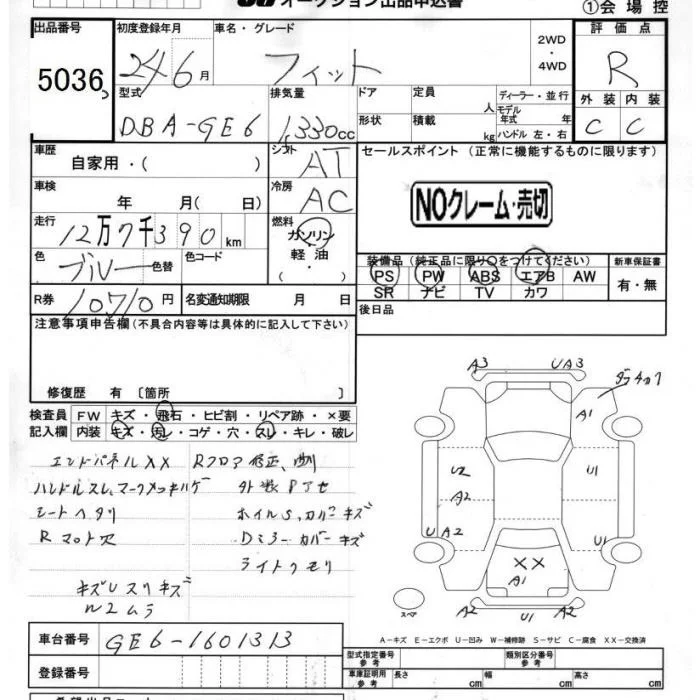 オークション出品申込書
①会場控
出品番号 初度登録年月 車名・グレード 2WD・4WD 評価点
5036 24 6月 フィット R
型式 排気量 ドア 定員 人 ディーラー・並行 外装 内装
DBA-GE6 1,330cc 形状 積載 kg モデル年式 年 ハンドル 左・右 C C
車歴 自家用・( ) シフト AT セールスポイント (正常に機能するものに限ります)
車検 年 月( 日) 冷房 AC NOクレーム・売切
走行 12万7千390km 燃料 ガソリン・軽油・
色 ブルー 色替 色コード 装備品 (純正品に限り○をつけてください) 新車保証書
PS PW ABS エアB AW 有・無
SR ナビ TV カワ
R券 10710円 名変通知期限 月 日 後日品
注意事項申告欄(不具合内容等は具体的に記入して下さい)
修復歴 有 〔箇所 〕
検査員記入欄 FW キズ・飛石・ヒビ割・リペア跡・×要
内装 キズ・汚レ・コゲ・穴・スレ・キレ・破レ
エンドパネルXX Rフロア修正、曲
ハンドルスレ、マークメッキハゲ 外装Pアセ
シートヘタリ ホイルS、カバーキズ
Rマット欠 Dミラーカバーキズ
ライトクモリ
キズUスリキズ
ルームムラ
A3 UA3
A1
U2 U1
A2
UA2
XX
A1
A2 U1 A2
スペア
A-キズ E-エクボ U-凹み W-補修跡 S-サビ C-腐食 XX-交換済
車台番号 GE6-1601313
登録番号
型式指定番号 参考 類別区分番号 参考
車庫証明用 参考 長さ cm 幅 cm 高さ cm